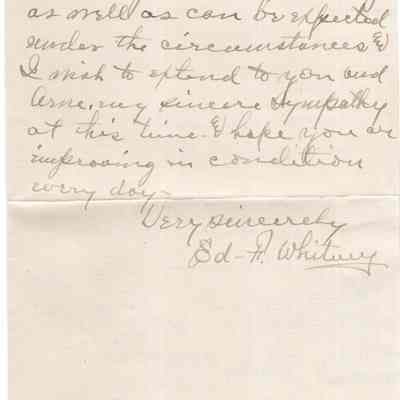 as well as can be expected
under the circumstances &
I wish to extend to you and
Arne. my sincere sympathy
at this time & hope you are
improoving in condition
every day-
Very sincerely
Ed-F. Whitney